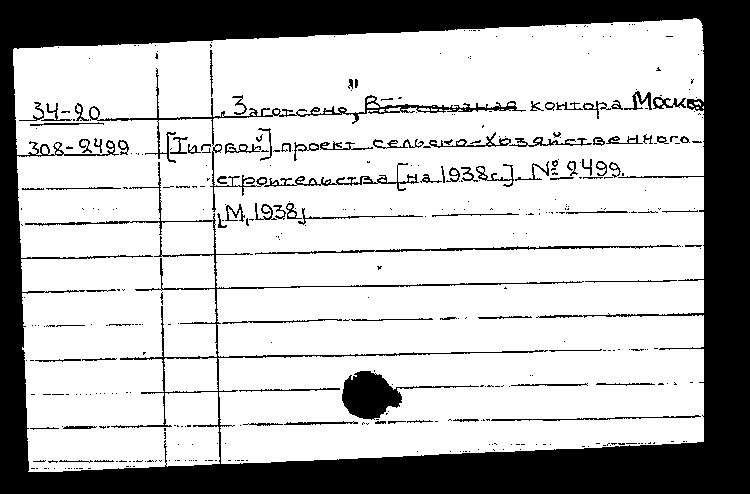 34-20 . Заготсено", Всесоюзная контора Москва
308-2499 [Типовой] проект сельско-хозяйственного
строительства [на 1938г.]. № 2499.
[М, 1938]